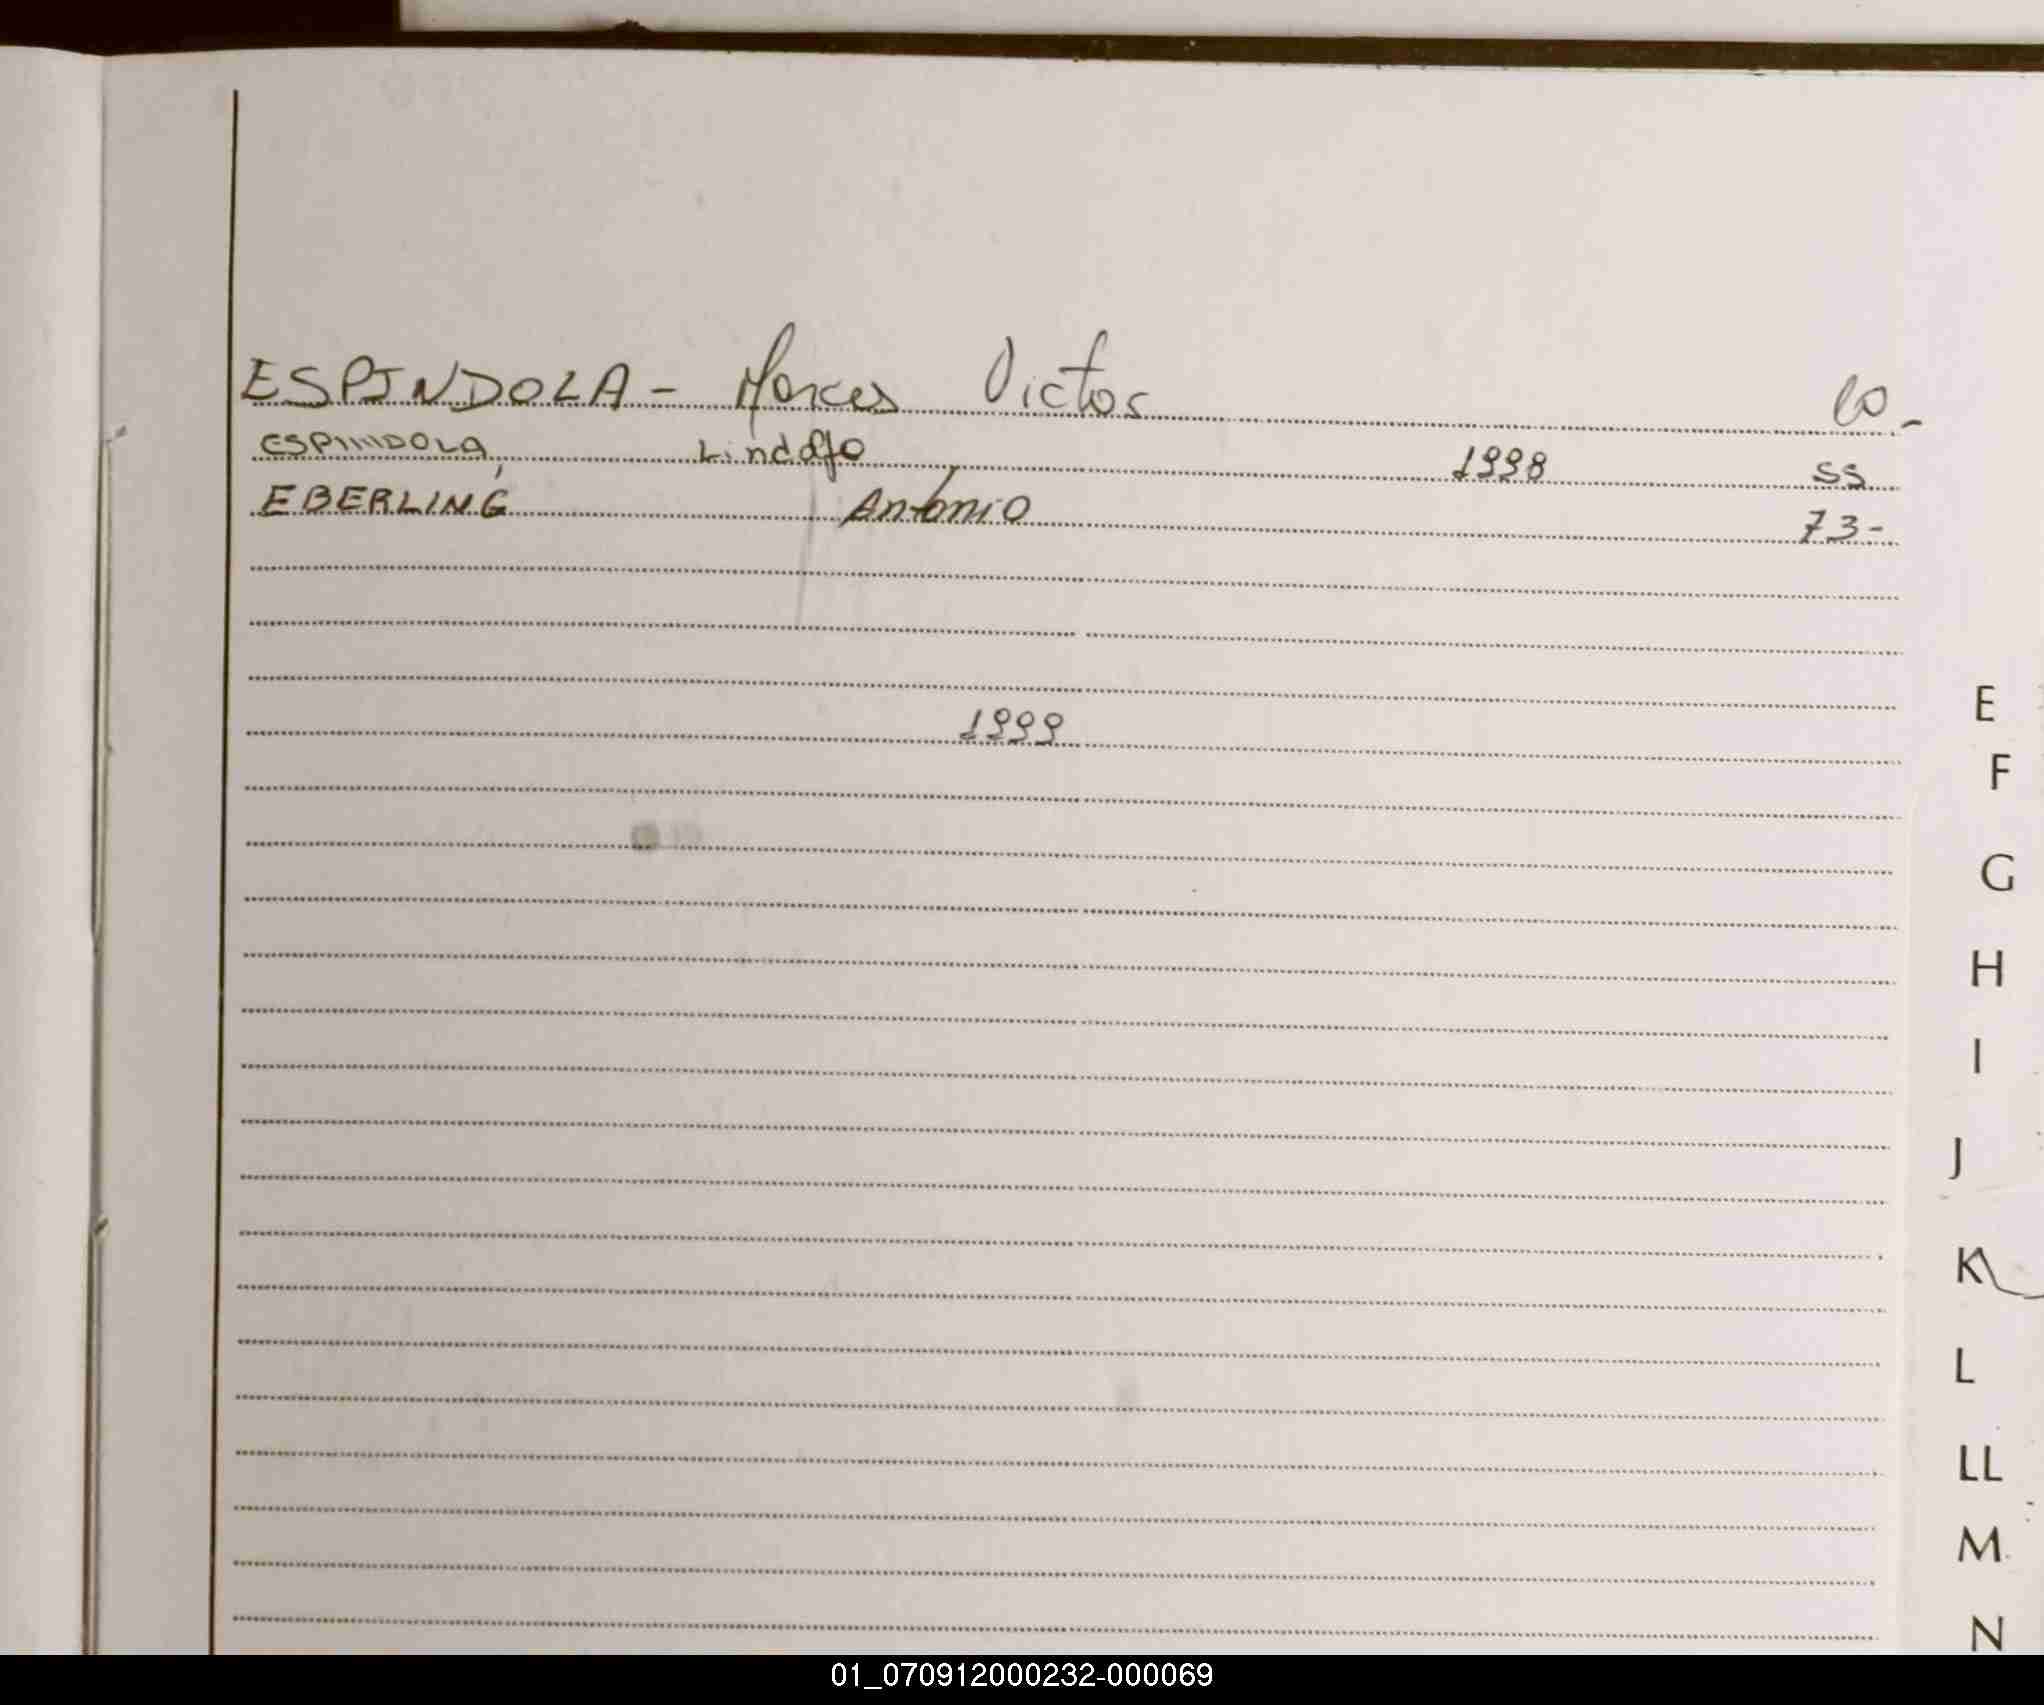 ESPINDOLA - Marcos Victor
ESPINDOLA, Lindolfo 1998 55
EBERLING Antonio 73-
1999
E
F
G
H
I
J
K
L
LL
M
N
01_070912000232-000069